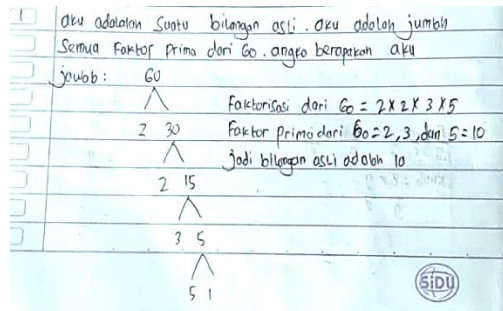 1 aku adalalan Suatu bilangan asli. aku adalah jumlah
Semua Faktor Prima dari 60. angka berapakah aku
jawab : 60
2 30
2 15
3 5
5 1
Faktorisasi dari 60 = 2 x 2 x 3 x 5
Faktor prima dari 60 = 2, 3, dan 5 = 10
jadi bilangan asli adalah 10
SiDU